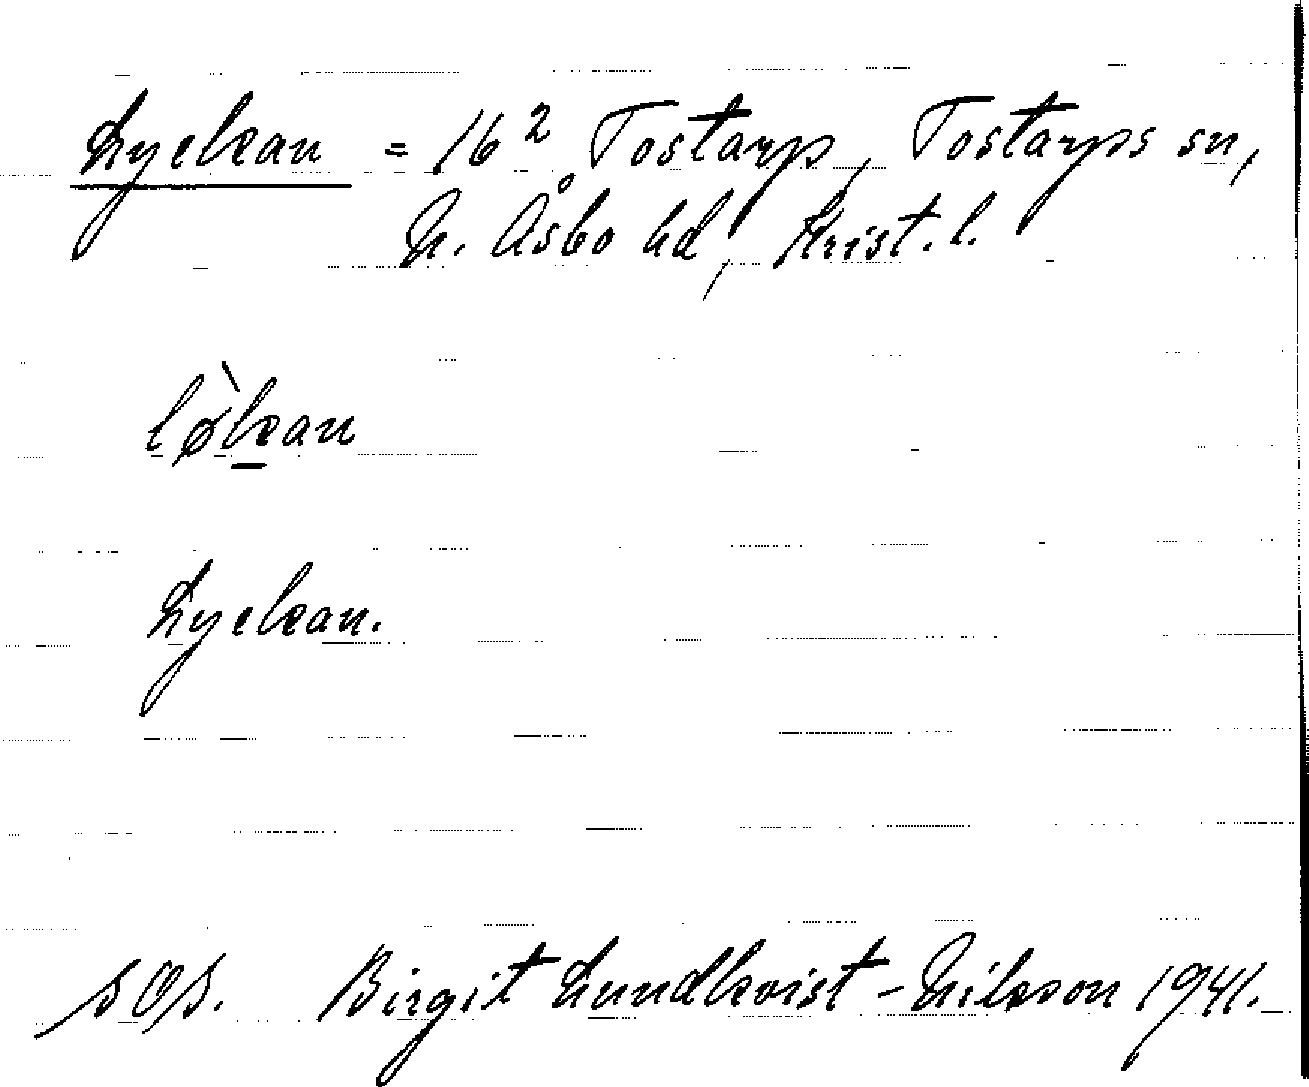 Lyckan = 16² Tostarp, Tostarps sn,
N. Åsbo hd, Krist. l.
lø̀kan
Lyckan.
SOS. Birgit Lundkvist-Nilsson 1941.